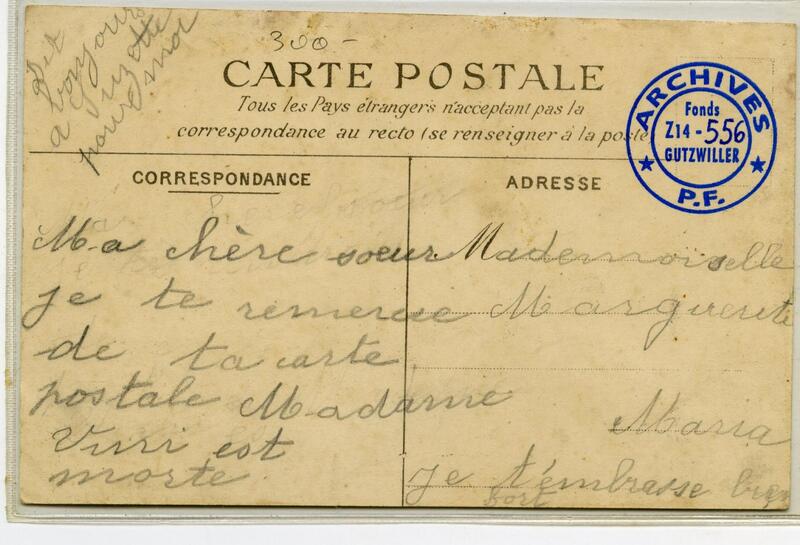 Dit
bonjour
a Suzette
pour moi
300-
CARTE POSTALE
Tous les Pays étrangers n'acceptent pas la
correspondance au recto (se renseigner à la poste
ARCHIVES
Fonds
Z14-556
GUTZWILLER
P.F.
CORRESPONDANCE
Ma chère soeur
je te remercie
de ta carte
postale Madame
est
morte
ADRESSE
Mademoiselle
Marguerite
Maria
je t'embrasse bien
fort